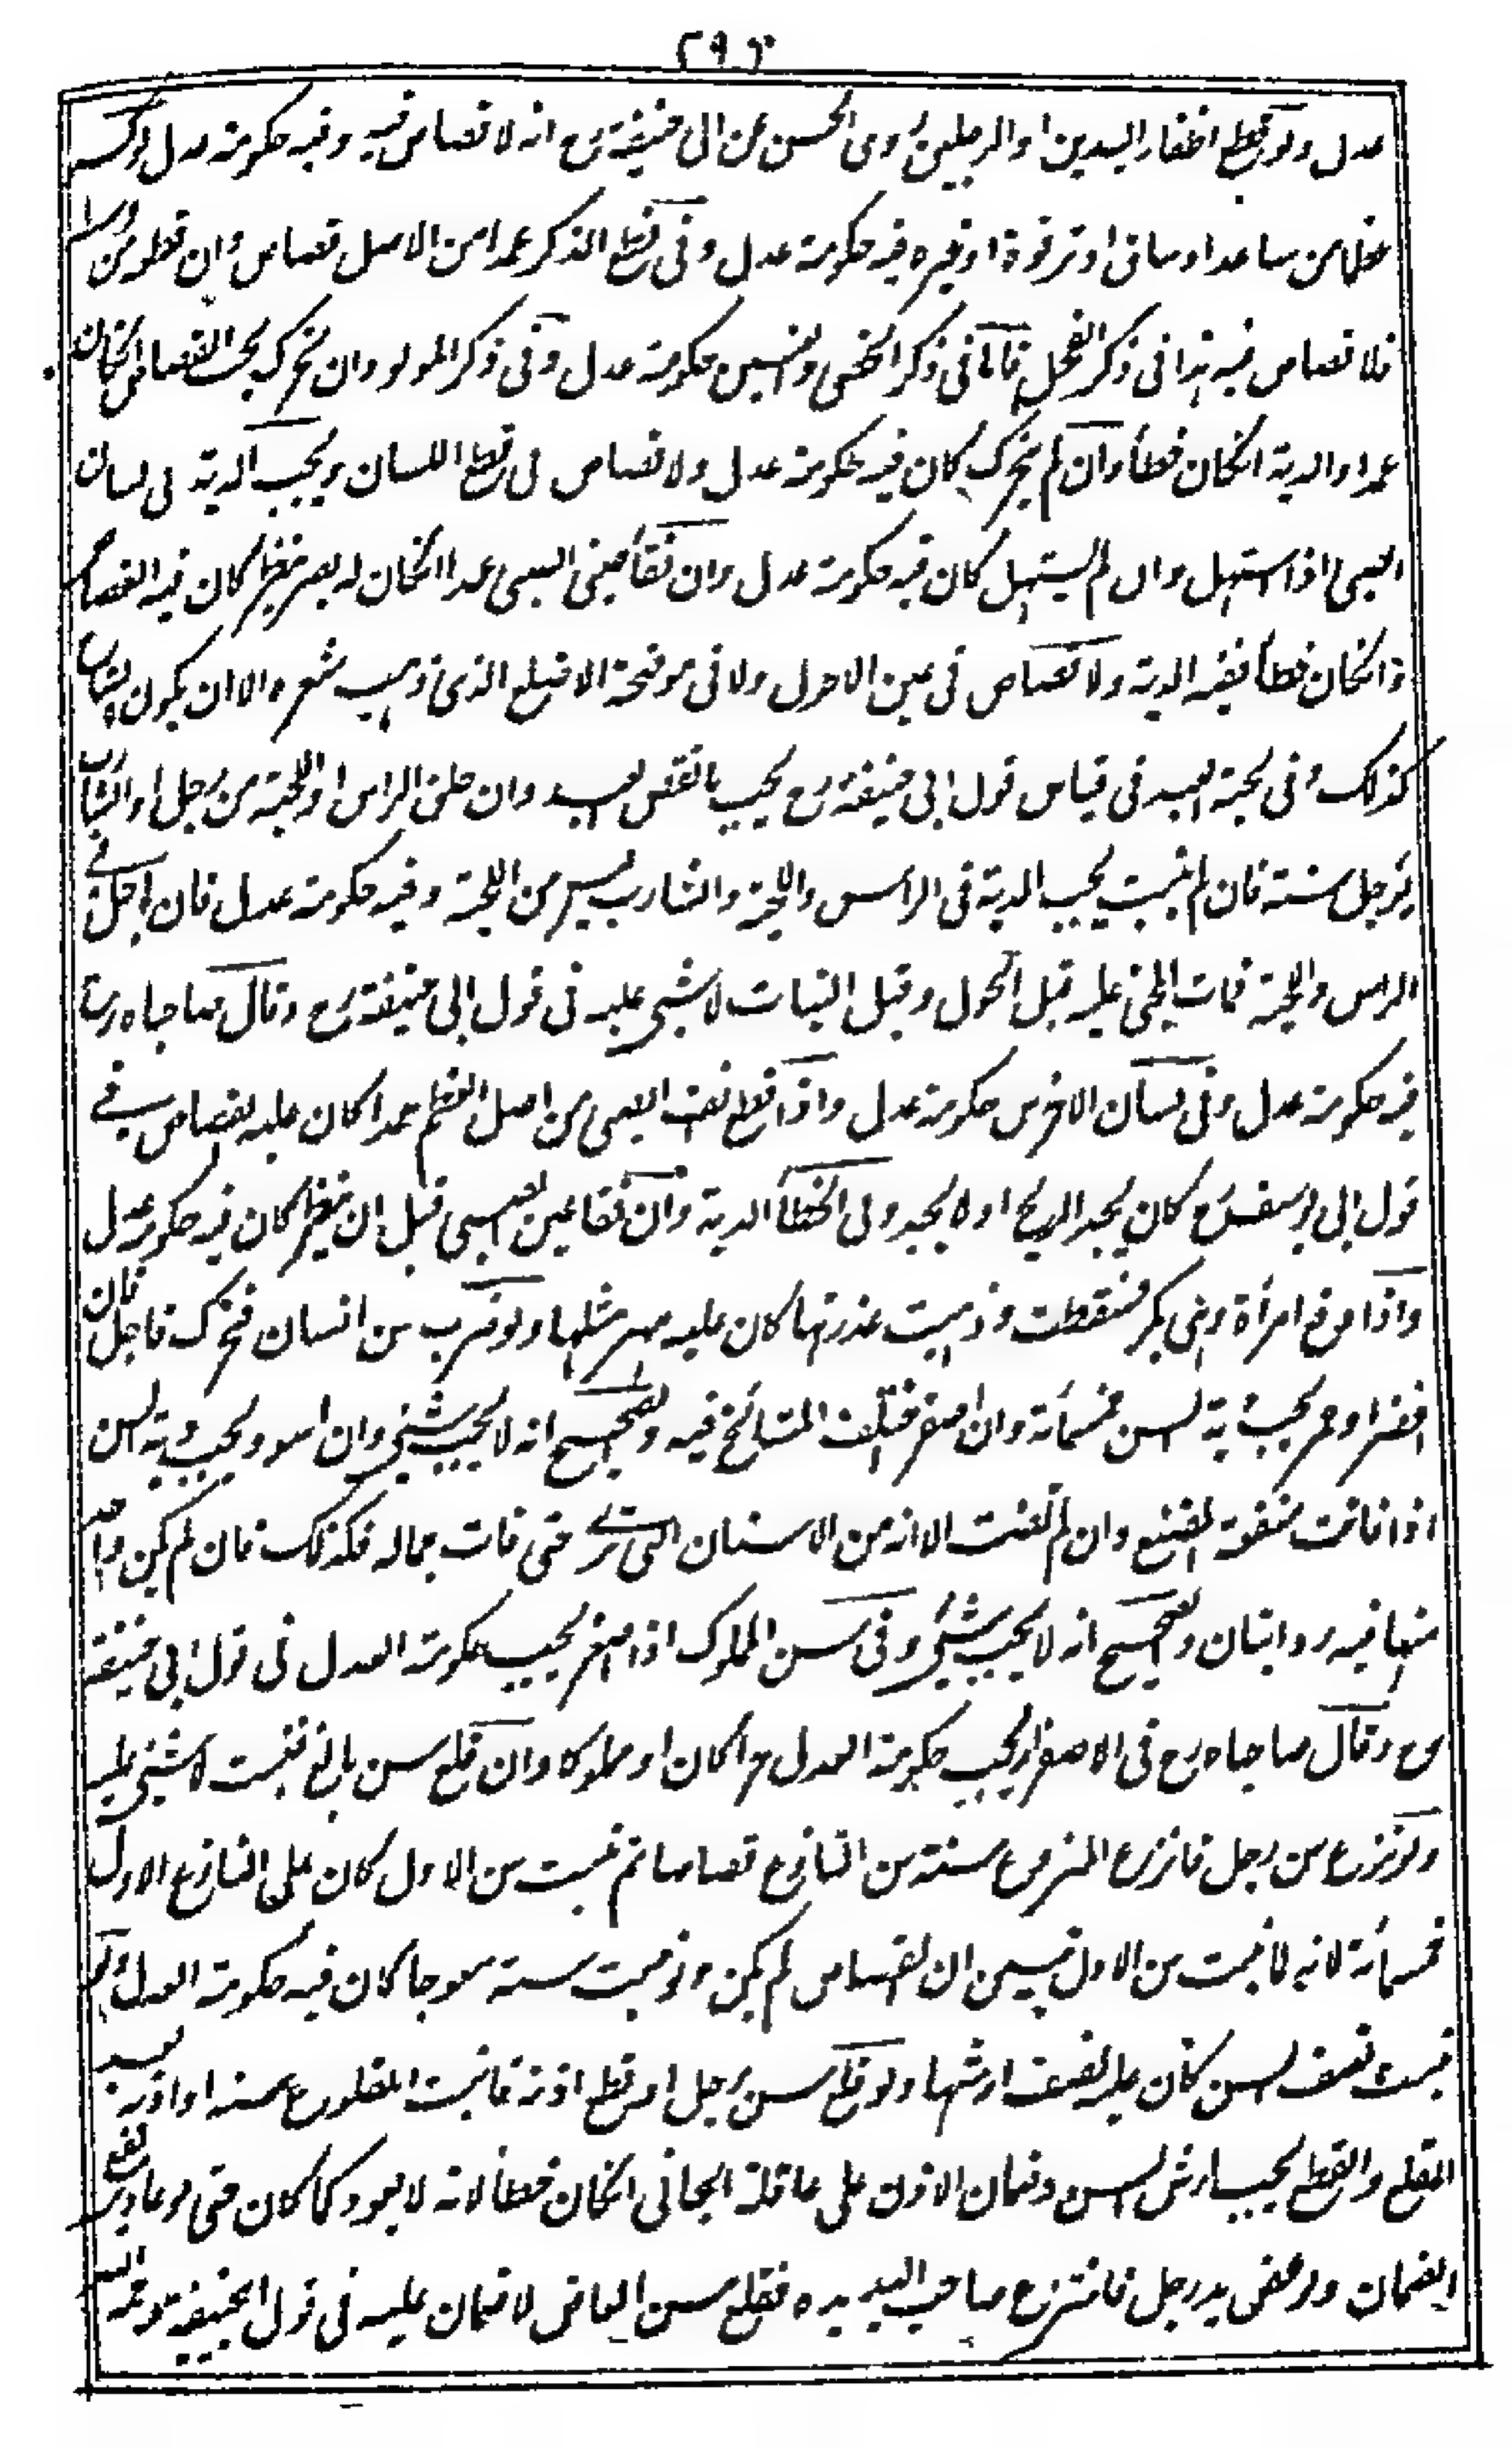 ٢٩٣
عدل ولو قطع اظفار اليدين او الرجلين روى الحسن عن ابى حنيفة رح انه لا قصاص فيه وفيه حكومة عدل ولو كسر
عظما من ساعد او ساق او ترقوة او غيره فيه حكومة عدل وفى قطع الذكر عمدا من الاصل قصاص وان قطع من وسطه
فلا قصاص فيه هذا فى ذكر الفحل فاما فى ذكر الخصى والعنين حكومة عدل وفى ذكر المولود ان تحرك يجب القصاص انكان
عمدا والدية انكان خطأ وان لم يتحرك كان فيه حكومة عدل ولا قصاص فى قطع اللسان ويجب الدية فى لسان
الصبى اذا استهل وان لم يستهل كان فيه حكومة عدل وان فقأ عينى الصبى عمدا انكان له بصر ينظر كان فيه القصاص
وانكان خطأ ففيه الدية ولا قصاص فى عين الاحول ولا فى موضحة الاصلع الذى ذهب شعره الا ان يكون الشاج
كذلك وفى لحية العبد فى قياس قول ابى حنيفة رح يجب بالنقص العبد وان حلق الراس او اللحية من رجل او الشارب
يؤجل سنة فان لم ينبت يجب الدية فى الراس واللحية والشارب ليس من اللحية وفيه حكومة عدل فان اجل فى
الراس واللحية فمات المجنى عليه قبل الحول وقبل النبات لا شيئ عليه فى قول ابى حنيفة رح وقال صاحباه رح
فيه حكومة عدل وفى لسان الاخرس حكومة عدل واذا قطع انف الصبى من اصل العظم عمدا كان عليه القصاص فى
قول ابى يوسف رح كان يجد الريح او لا يجد وفى الخطأ الدية وان فقأ عين الصبى قبل ان ينظر كان فيه حكومة عدل
واذا دفع امرأة وهى بكر فسقطت وذهبت عذرتها كان عليه مهر مثلها ولو ضرب سن انسان فتحرك فاجل فان
اخضر او حمر يجب دية السن خمسمائة وان اصفر اختلف المشائخ فيه والصحيح انه لا يجب شيئ وان اسود يجب دية السن
اذا فاتت منفعة المضغ وان لم تفت الا انه من الاسنان التى ترى حتى فات جماله فكذلك فان لم يكن واحد
منهما ففيه روايتان والصحيح انه لا يجب شيئ وفى سن المملوك اذا اصفر يجب حكومة العدل فى قول ابى حنيفة
رح وقال صاحباه رح فى الاصفرار يجب حكومة العدل حرا كان او مملوكا وان قلع سن بالغ فنبت لا شيئ عليه
ولو نزع سن رجل فانتزع المنزوع سنه سن النازع قصاصا ثم نبت سن الاول كان على النازع الاول
خمسمائة لانه لما نبت سن الاول تبين ان القصاص لم يكن ولو نبت سنه معوجا كان فيه حكومة العدل ولو
نبت نصف السن كان عليه نصف ارشها ولو قلع سن رجل او قطع اذنه فاثبت المقلوع سنه او اذنه بعد
القلع والقطع يجب ارش السن وضمان الاذن على عاقلة الجانى انكان خطأ لانه لا يعود كما كان حتى لو عاد يرتفع
الضمان ولو عض يد رجل فانتزع صاحب اليد يده فقلع سن العاض لا ضمان عليه فى قول ابيحنيفة رحمه الله